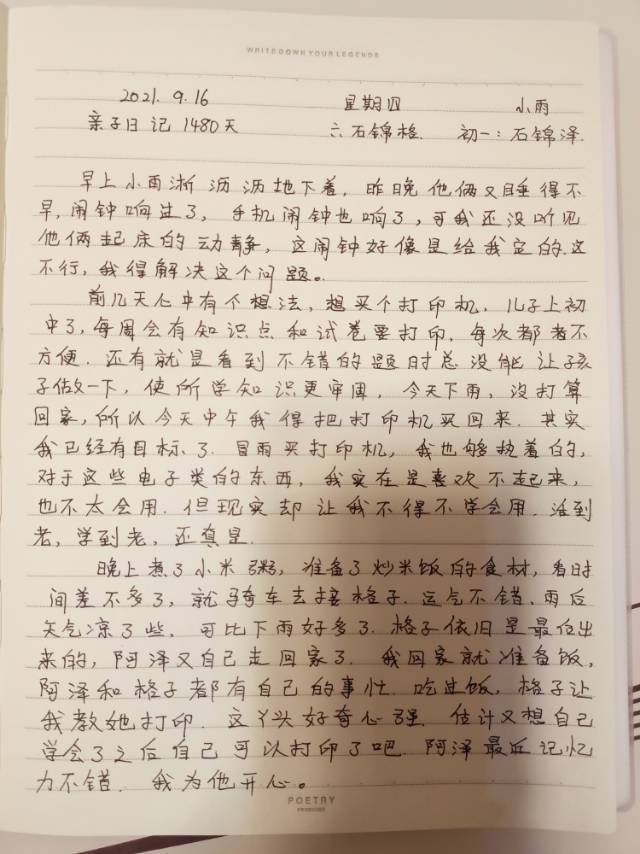 WRITE DOWN YOUR LEGENDS
2021. 9. 16 星期四 小雨
亲子日记 1480天 六石锦格. 初一:石锦泽.
早上小雨淅沥沥地下着,昨晚他俩又睡得不
早,闹钟响过了,手机闹钟也响了,可我还没听见
他俩起床的动静,这闹钟好像是给我定的.这
不行,我得解决这个问题。
前几天心中有个想法,想买个打印机,儿子上初
中了,每周会有知识点和试卷要打印,每次都老不
方便.还有就是看到不错的题时总没能让孩
子做一下,使所学知识更牢固,今天下雨,没打算
回家,所以今天中午我得把打印机买回来.其实
我已经有目标了.冒雨买打印机,我也够执着的,
对于这些电子类的东西,我实在是喜欢不起来,
也不太会用.但现实却让我不得不学会用.活到
老,学到老,还真是.
晚上煮了小米粥,准备了炒米饭的食材,看时
间差不多了,就骑车去接格子.运气不错.雨后
天气凉了些.可比下雨好多了.格子依旧是最后出
来的,阿泽又自己走回家了.我回家就准备饭,
阿泽和格子都有自己的事忙.吃过饭,格子让
我教她打印.这丫头好奇心强.估计又想自己
学会了之后自己可以打印了吧.阿泽最近记忆
力不错.我为他开心。
POETRY